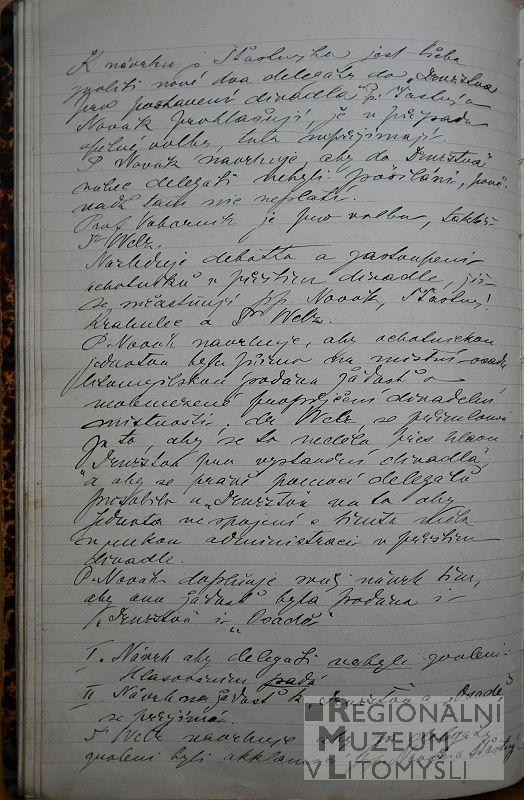 K návrhu p. Šťastnýho jest třeba
zvoliti nové dva delegáty do „Družstva
pro postavení divadla“ Pp. Šťastný a
Novák prohlašují, že v případu
volby, tuto nepřijímají.
P. Novák navrhuje, aby do Družstva
vůbec delegáti nebyli posíláni, poně-
vadž tam nic neplatí.
Prof. Voborník je pro volbu, taktéž
Dr Welz.
Následuje debatta o zastoupení
ochotníků v příštím divadle, jíž
se súčastňují pp. Novák, Šťastný,
Krahulec a Dr Welz.
P. Novák navrhuje, aby ochotnickou
jednotou byla přímo na místní osadu
litomyšlskou podána žádost o
propůjčení divadelní
místnosti. Dr Welz se přimlouvá
za to aby se to nedělo přes hlavu
„Družstva pro vystavění divadla“,
a aby se právě pomocí delegátů
působilo u „Družstva“ na to aby
jednota ve spojení s tímto měla
administraci v příštím
divadle.
P. Novák doplňuje svůj návrh tím,
aby ona žádost byla podána i
„Družstvu“ i „Osadě“
I. Návrh aby delegáti nebyli zvoleni
Hlasováním padá
II Návrh na žádost k „Družstvu“ a „Osadě“
se přijímá.
Dr Welz navrhuje aby za delegáty
zvoleni byli akklamací
REGIONÁLNÍ
MUZEUM
V LITOMYŠLI